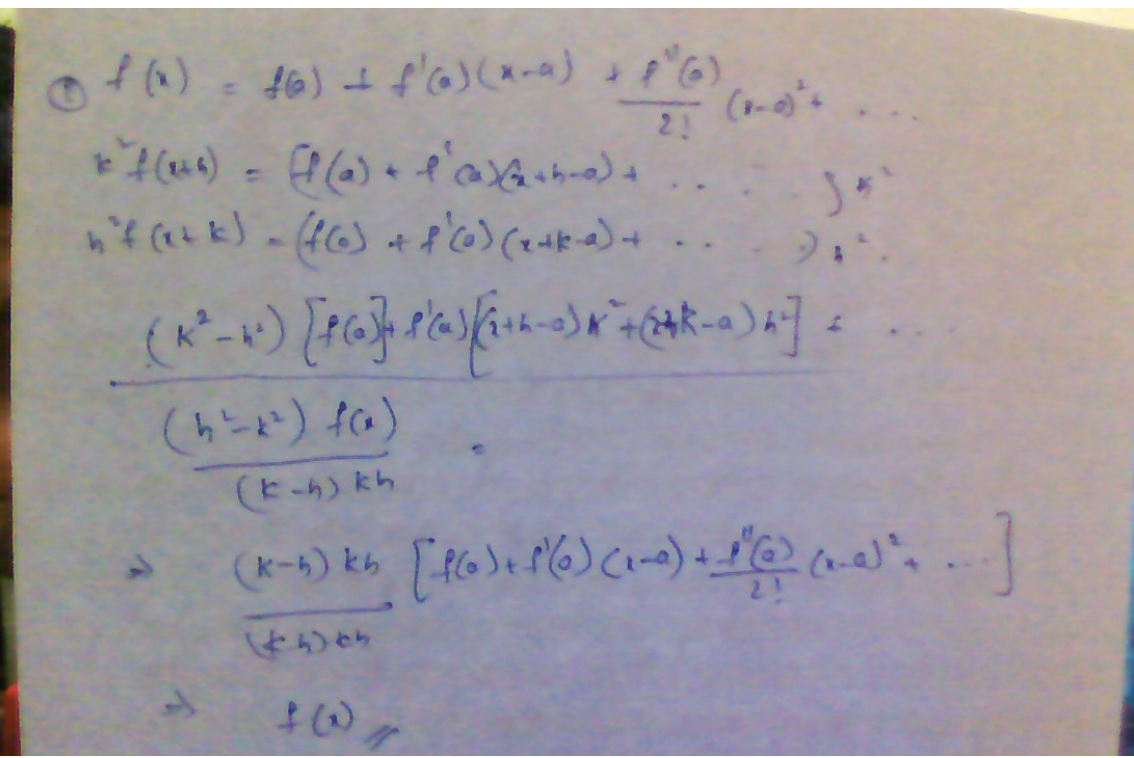 ① f(x) = f(a) + f'(a)(x-a) + f''(a)/2! (x-a)² + ...
k² f(x+h) = [f(a) + f'(a)(x+h-a) + ..... ] k²
h² f(x+k) = (f(a) + f'(a)(x+k-a) + .. .. ) h².
(k²-h²) [f(a)] + f'(a) [(x+h-a)k² + (x+k-a)h²] + ...
(h²-k²) f(x)
(k-h) kh
=
⇒ (k-h) kh / (k-h) kh [f(a) + f'(a)(x-a) + f''(a)/2! (x-a)² + ...]
⇒ f(x) //